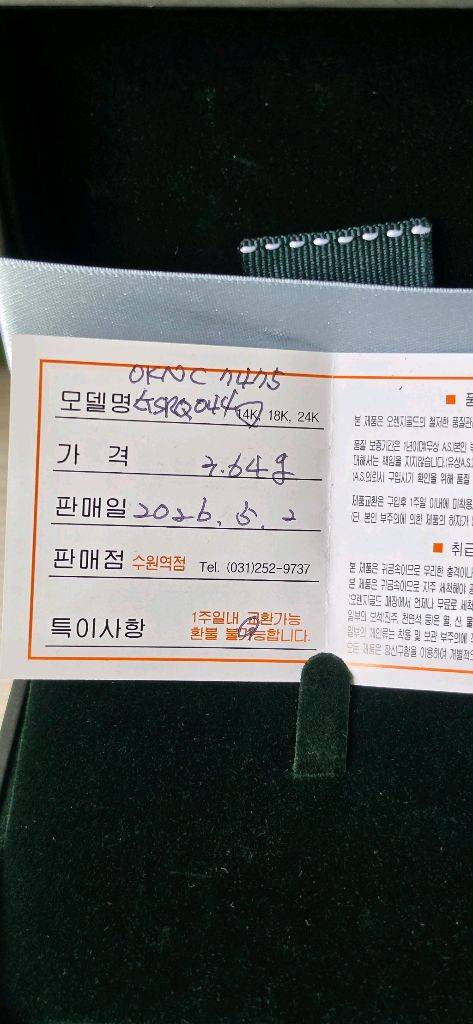 OKNC 7475
모델명 14K, 18K, 24K
가 격 3.64g
판매일 2026. 5. 2
판매점 수원역점 Tel. (031)252-9737
특이사항 1주일내 교환가능
환불 불가능합니다.
■ 품
본 제품은 오렌지골드의 철저한 품질관
품질 보증기간은 1년이며(무상 A.S)본인 부
대해서는 책임을 지지않습니다.(유상A.S
(A.S의뢰시 구입시기 확인을 위해 품질
제품교환은 구입후 1주일 이내에 미착용
(단, 본인 부주의에 의한 제품의 하자가
■ 취급
본 제품은 귀금속이므로 무리한 충격이나
본 제품은 귀금속이므로 자주 세척해야
(오렌지골드 매장에서 언제나 무료로 세척
일부의 보석(진주, 천연석 등)은 열, 산,
일부의 체인류는 착용 및 보관 부주의에
모든 제품은 장신구함을 이용하여 개별적으